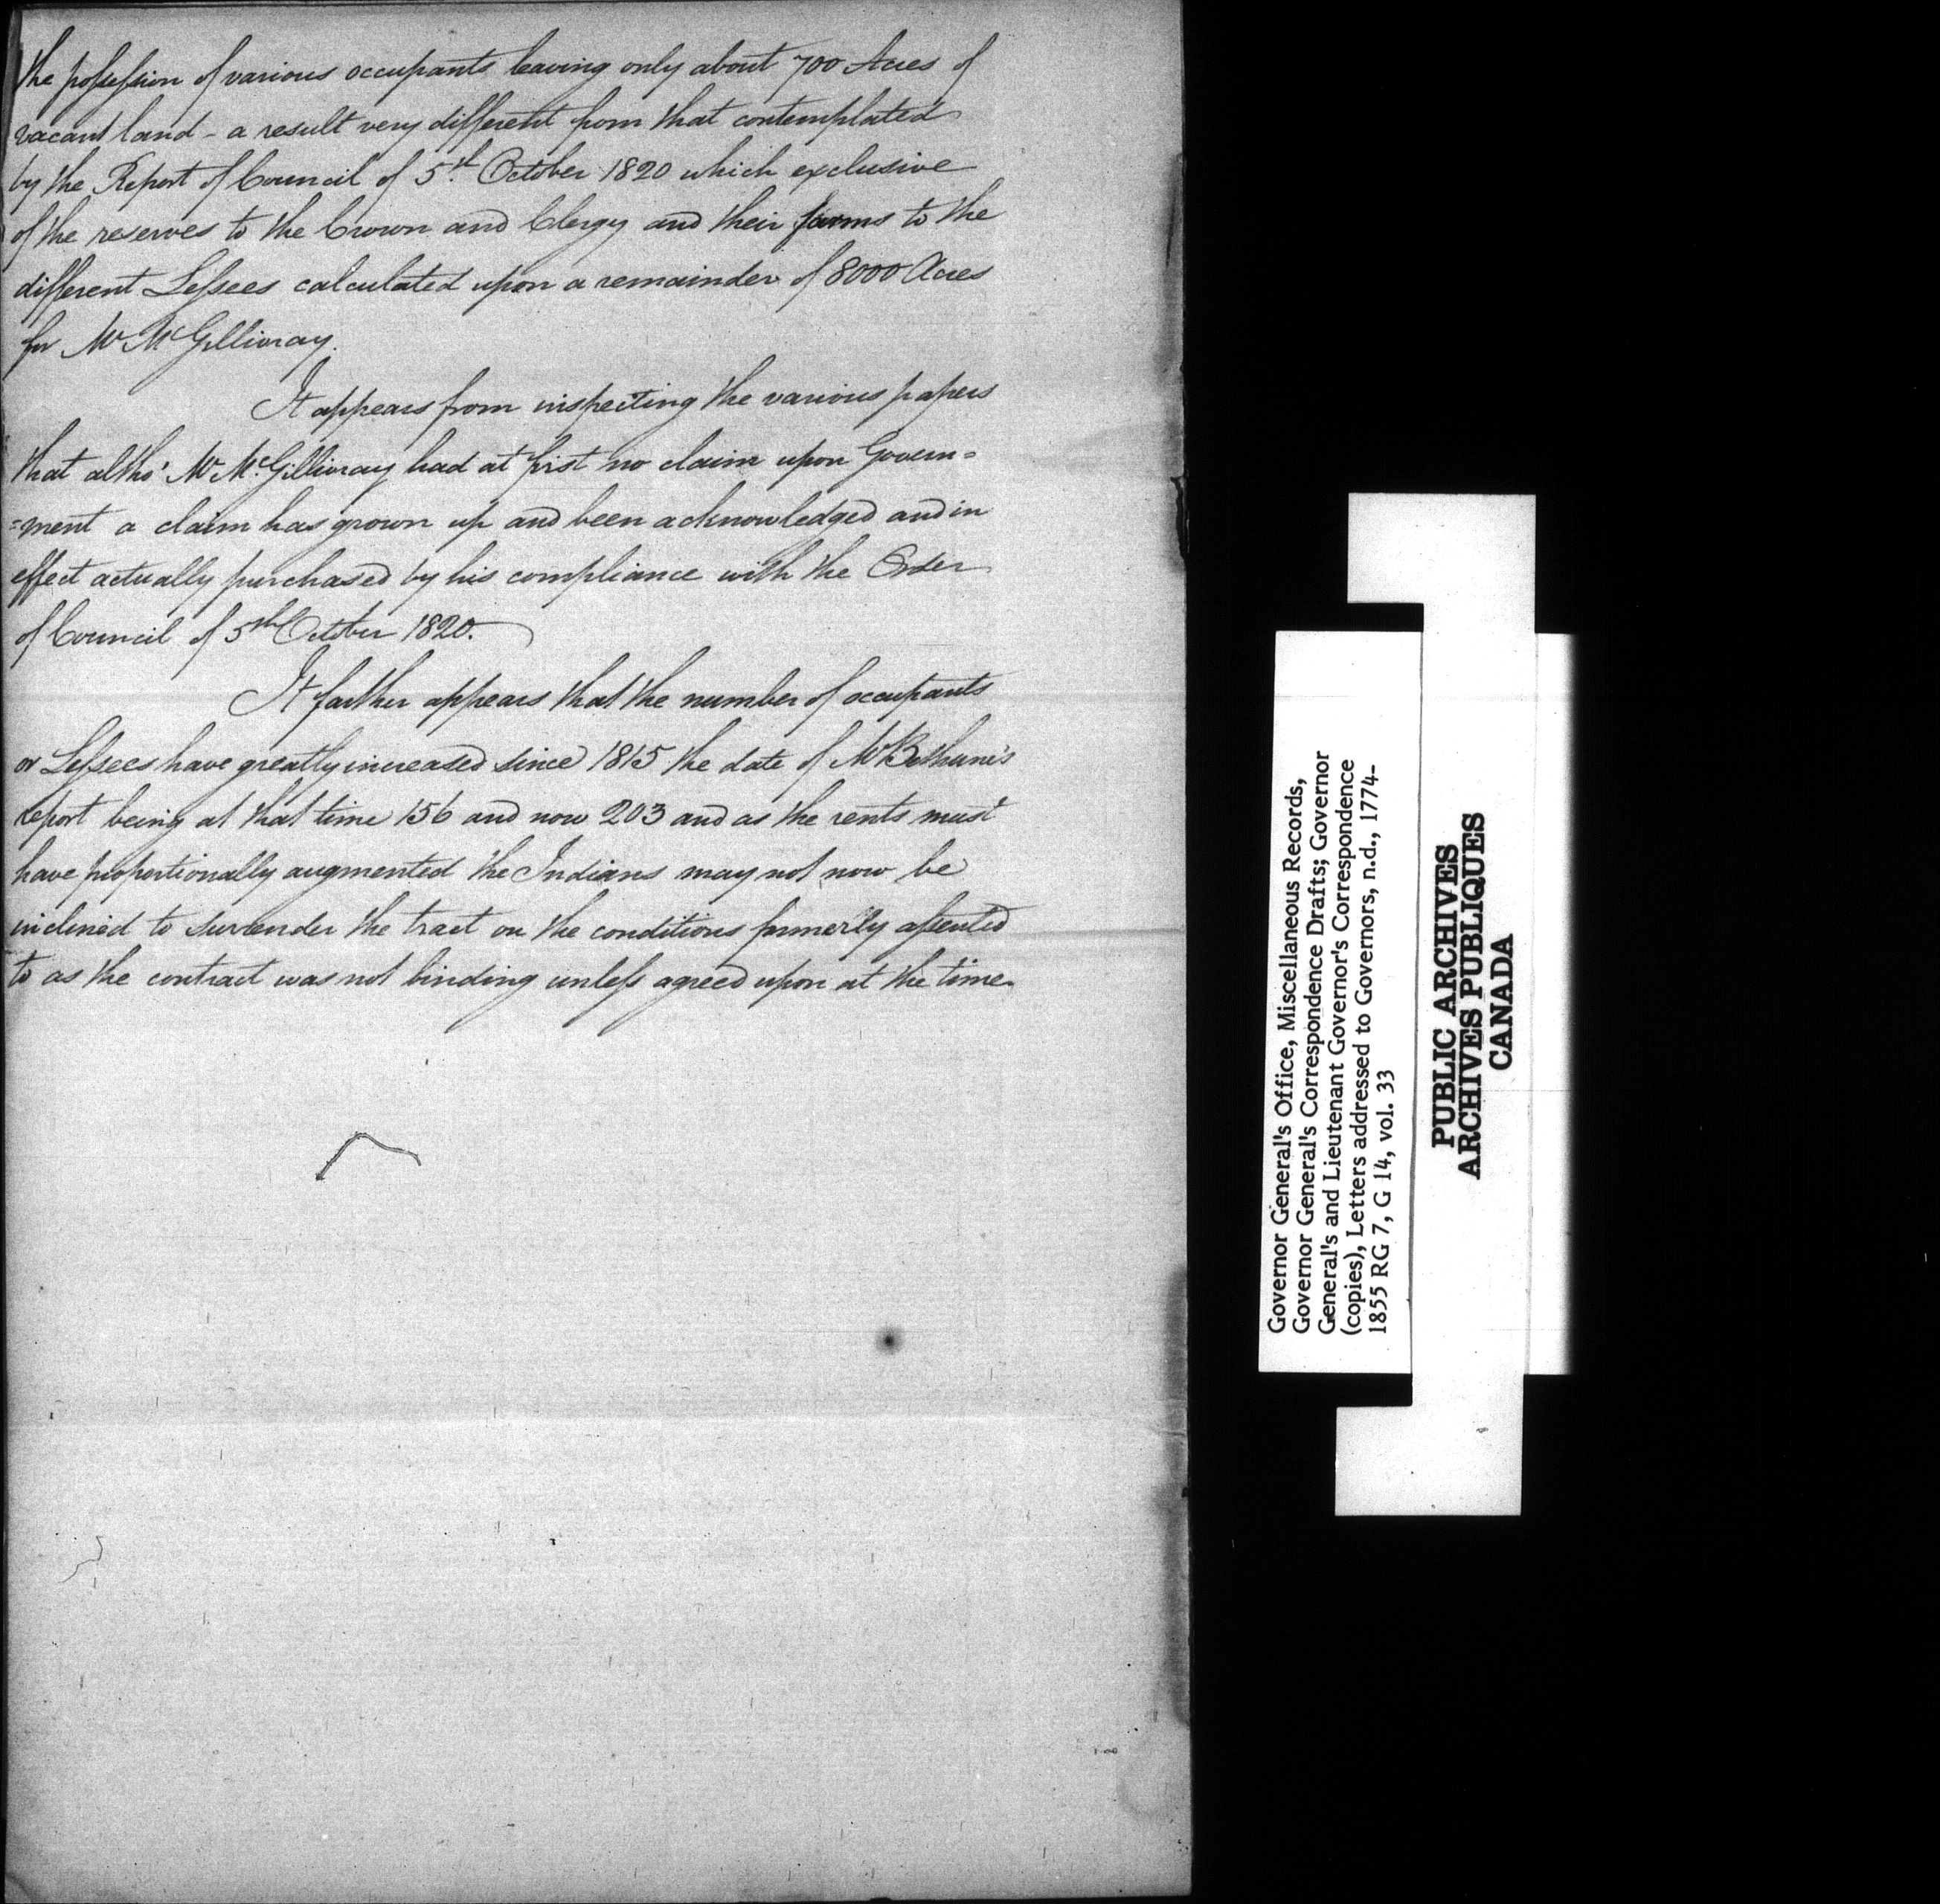 the possession of various occupants leaving only about 700 Acres of
vacant land - a result very different from that contemplated
by the Report of Council of 5th October 1820 which exclusive
of the reserves to the Crown and Clergy and their farms to the
different Lessees calculated upon a remainder of 8000 Acres
for Mr McGillivray.
It appears from inspecting the various papers
that altho' Mr McGillivray had at first no claim upon Govern=
=ment a claim has grown up and been acknowledged and in
effect actually purchased by his compliance with the Order
of Council of 5th October 1820.
It farther appears that the number of occupants
or Lessees have greatly increased since 1815 the date of Mr Bethune's
report being at that time 156 and now 203 and as the rents must
have proportionally augmented the Indians may not now be
inclined to surrender the tract on the conditions formerly assented
to as the contract was not binding unless agreed upon at the time.
Governor General's Office, Miscellaneous Records,
Governor General's Correspondence Drafts; Governor
General's and Lieutenant Governor's Correspondence
(copies), Letters addressed to Governors, n.d., 1774-
1855 RG 7, G 14, vol. 33
PUBLIC ARCHIVES
ARCHIVES PUBLIQUES
CANADA